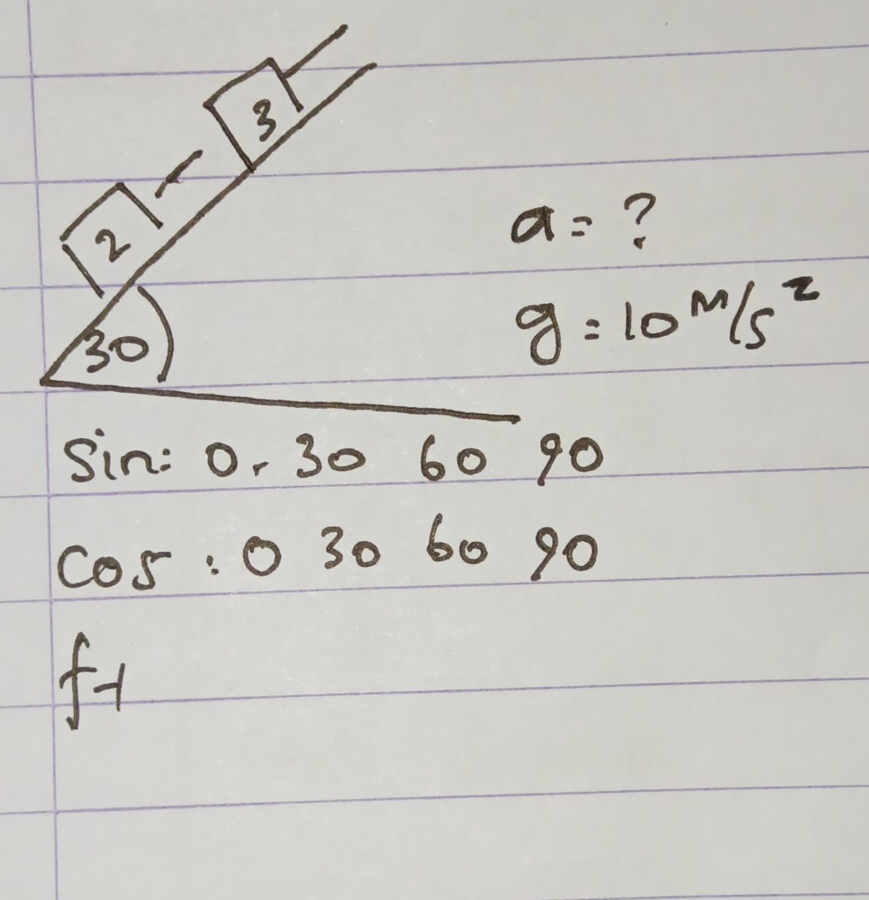 3
2
a = ?
30
g = 10 M/s²
Sin: 0. 30 60 90
cos : 0 30 60 90